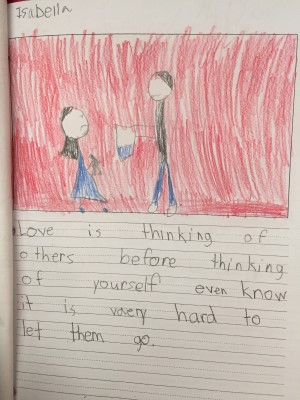 Isabella
Love is thinking of
others before thinking
of yourself even know
it is vavery hard to
let them go.